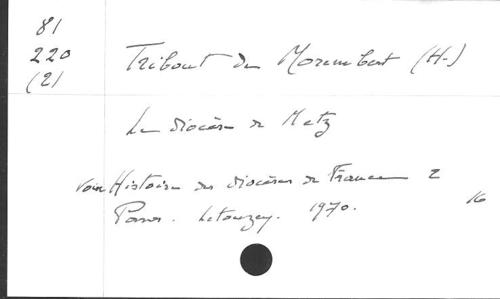 81
220
(2)
Tribout de Morembert (H.)
Le diocèse de Metz
voir Histoire des diocèses de France 2
Paris. Letouzey. 1970.
16